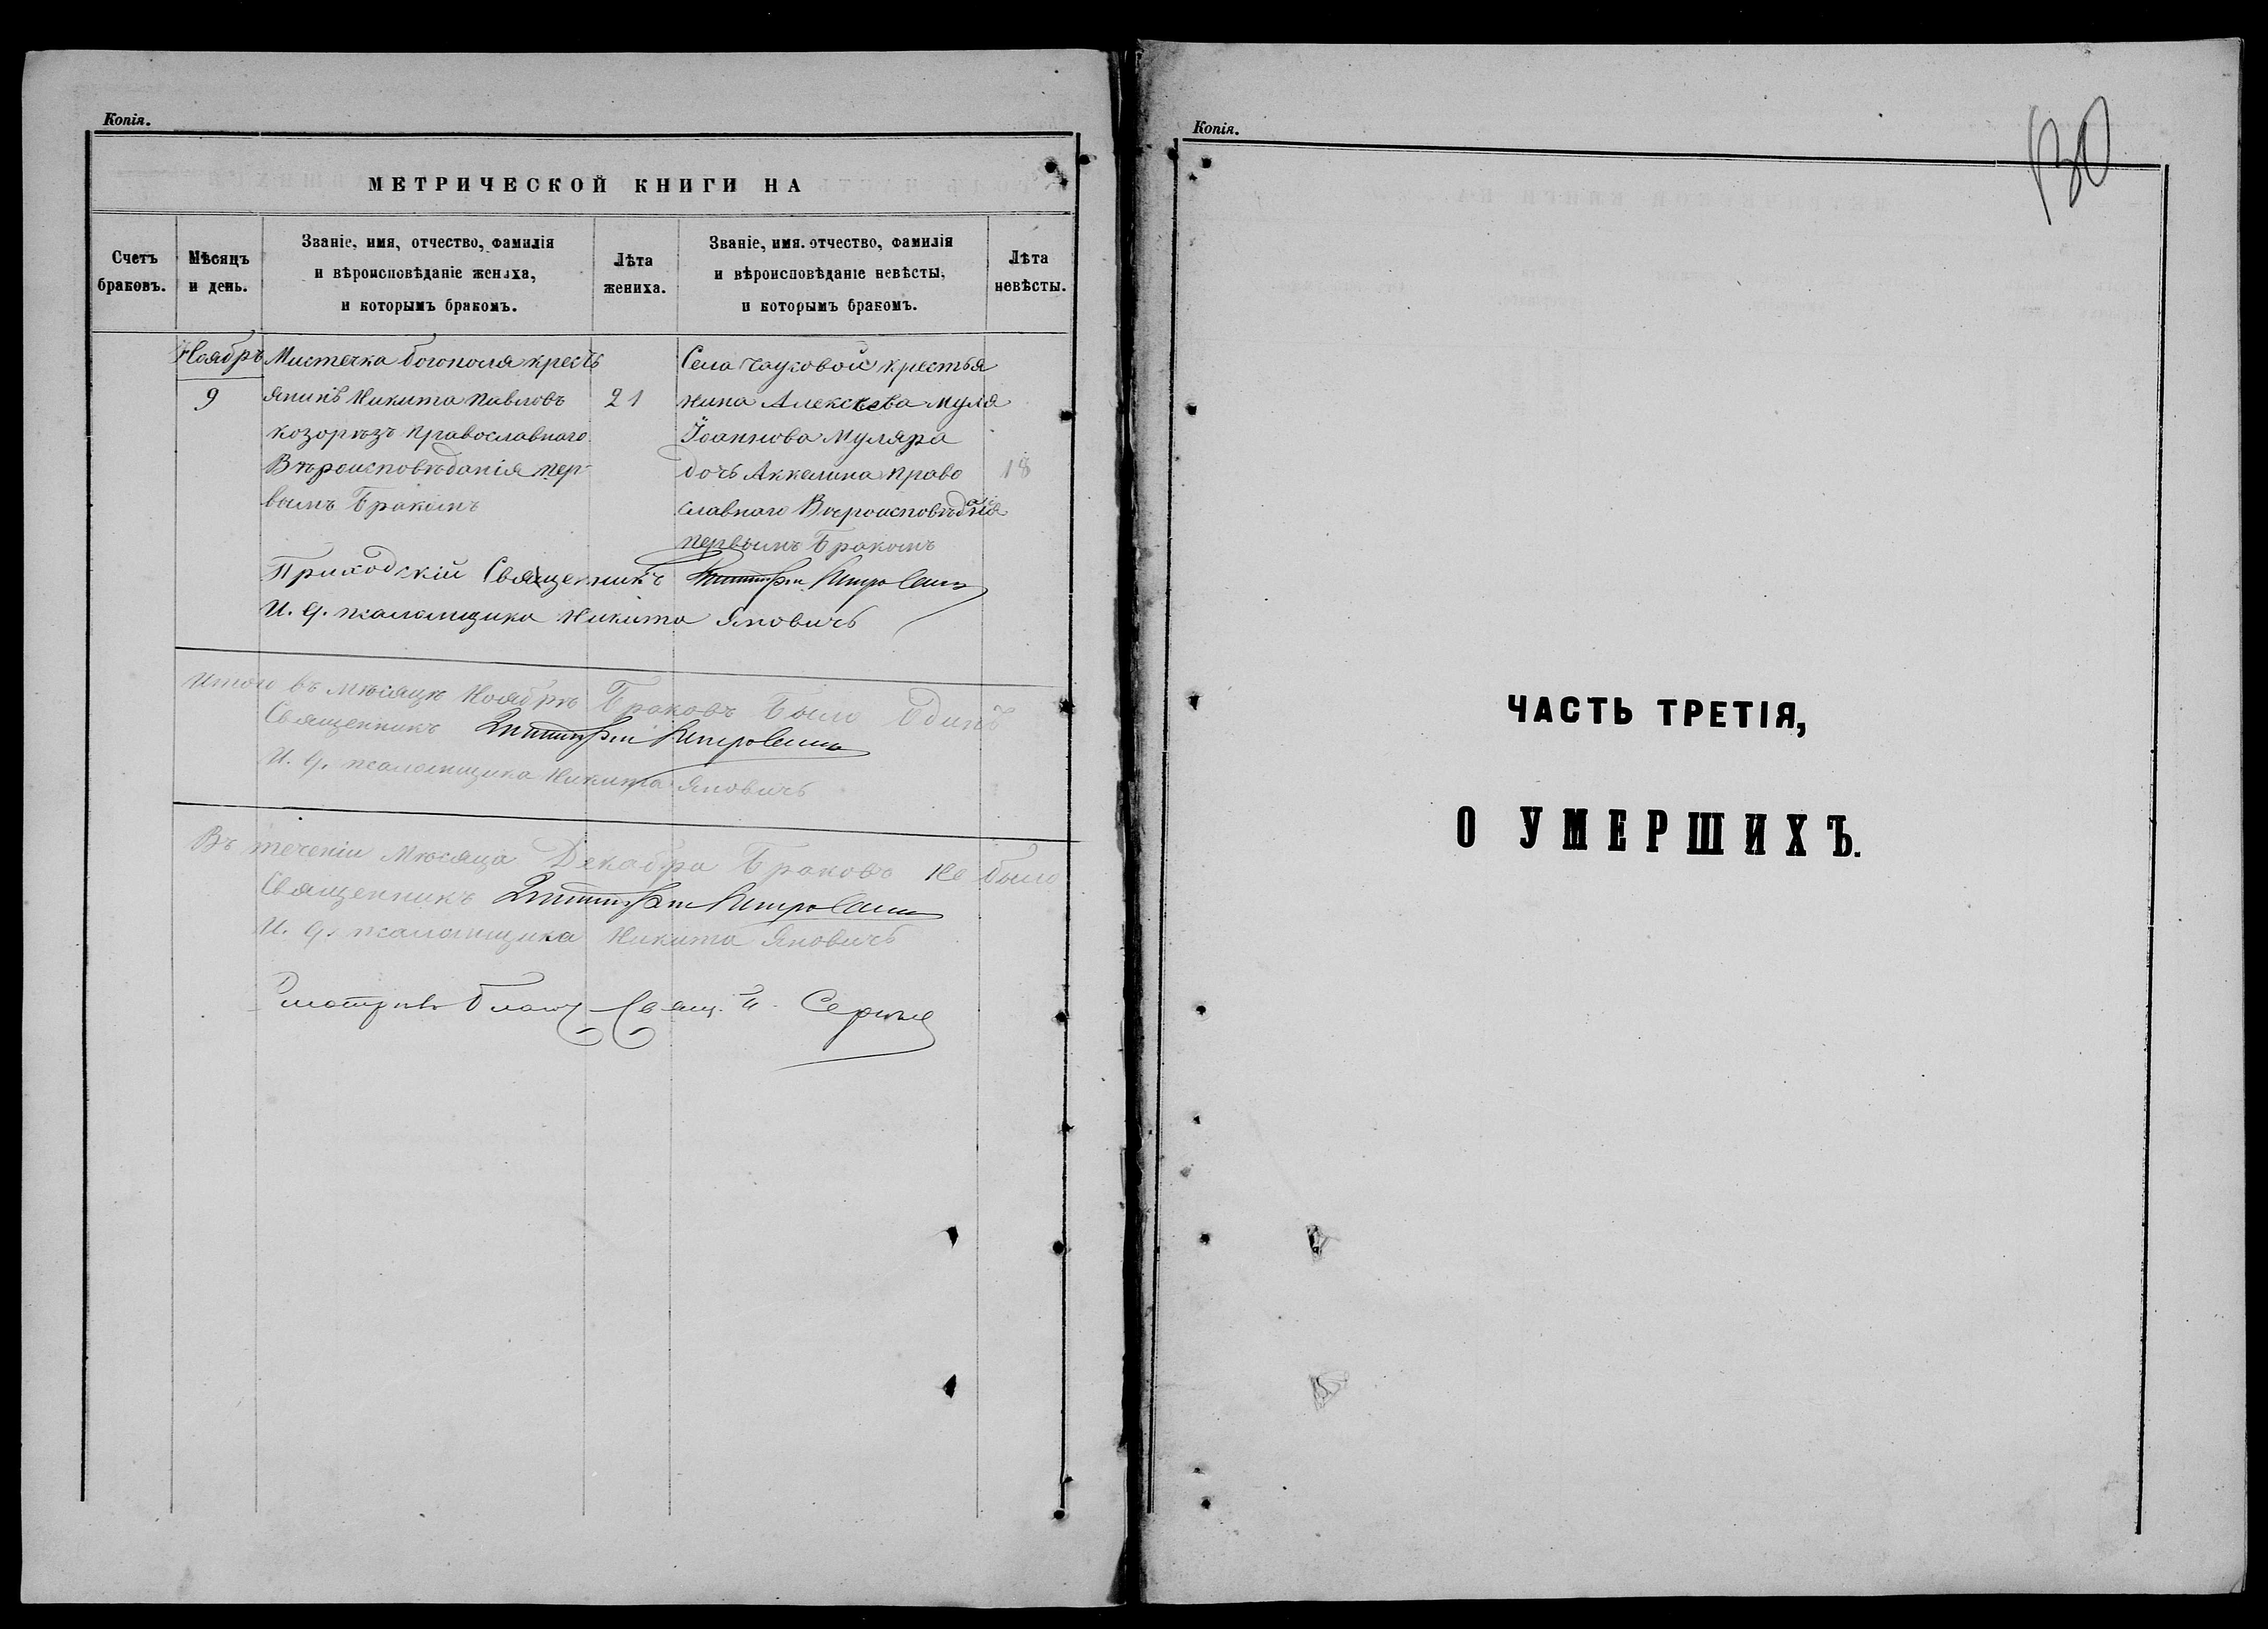 Копія.
МЕТРИЧЕСКОЙ КНИГИ НА
Счетъ браковъ.
Мѣсяцъ и день.
Званіе, имя, отчество, фамилія
и вѣроисповѣданіе жениха,
и которымъ бракомъ.
Лѣта жениха.
Званіе, имя. отчество, фамилія
и вѣроисповѣданіе невѣсты,
и которымъ бракомъ.
Лѣта невѣсты.
Ноябрь
9
Мистечка богополя кресть
янинъ Никита Павловъ
козорѣзъ православнаго
Вѣроисповѣданія пер
вымъ Бракомъ
21
Села Чаусовой крестья
нина Алексѣева Муля
Іоаннова Муляра
дочь Аккелина право
славнаго Вѣроисповѣданія
первымъ Бракомъ
18
Приходскій Священникъ
И. д. псаломщика Никита Яновичъ
Итого въ мѣсяцѣ Ноябрѣ Браковъ Было Одинъ
Священникъ
И. д. псаломщика Никита Яновичъ
Въ теченіи мѣсяца Декабра Браковъ не было
Священникъ
И. д. псаломщика Никита Яновичъ
Копія.
130
ЧАСТЬ ТРЕТІЯ,
О УМЕРШИХЪ.